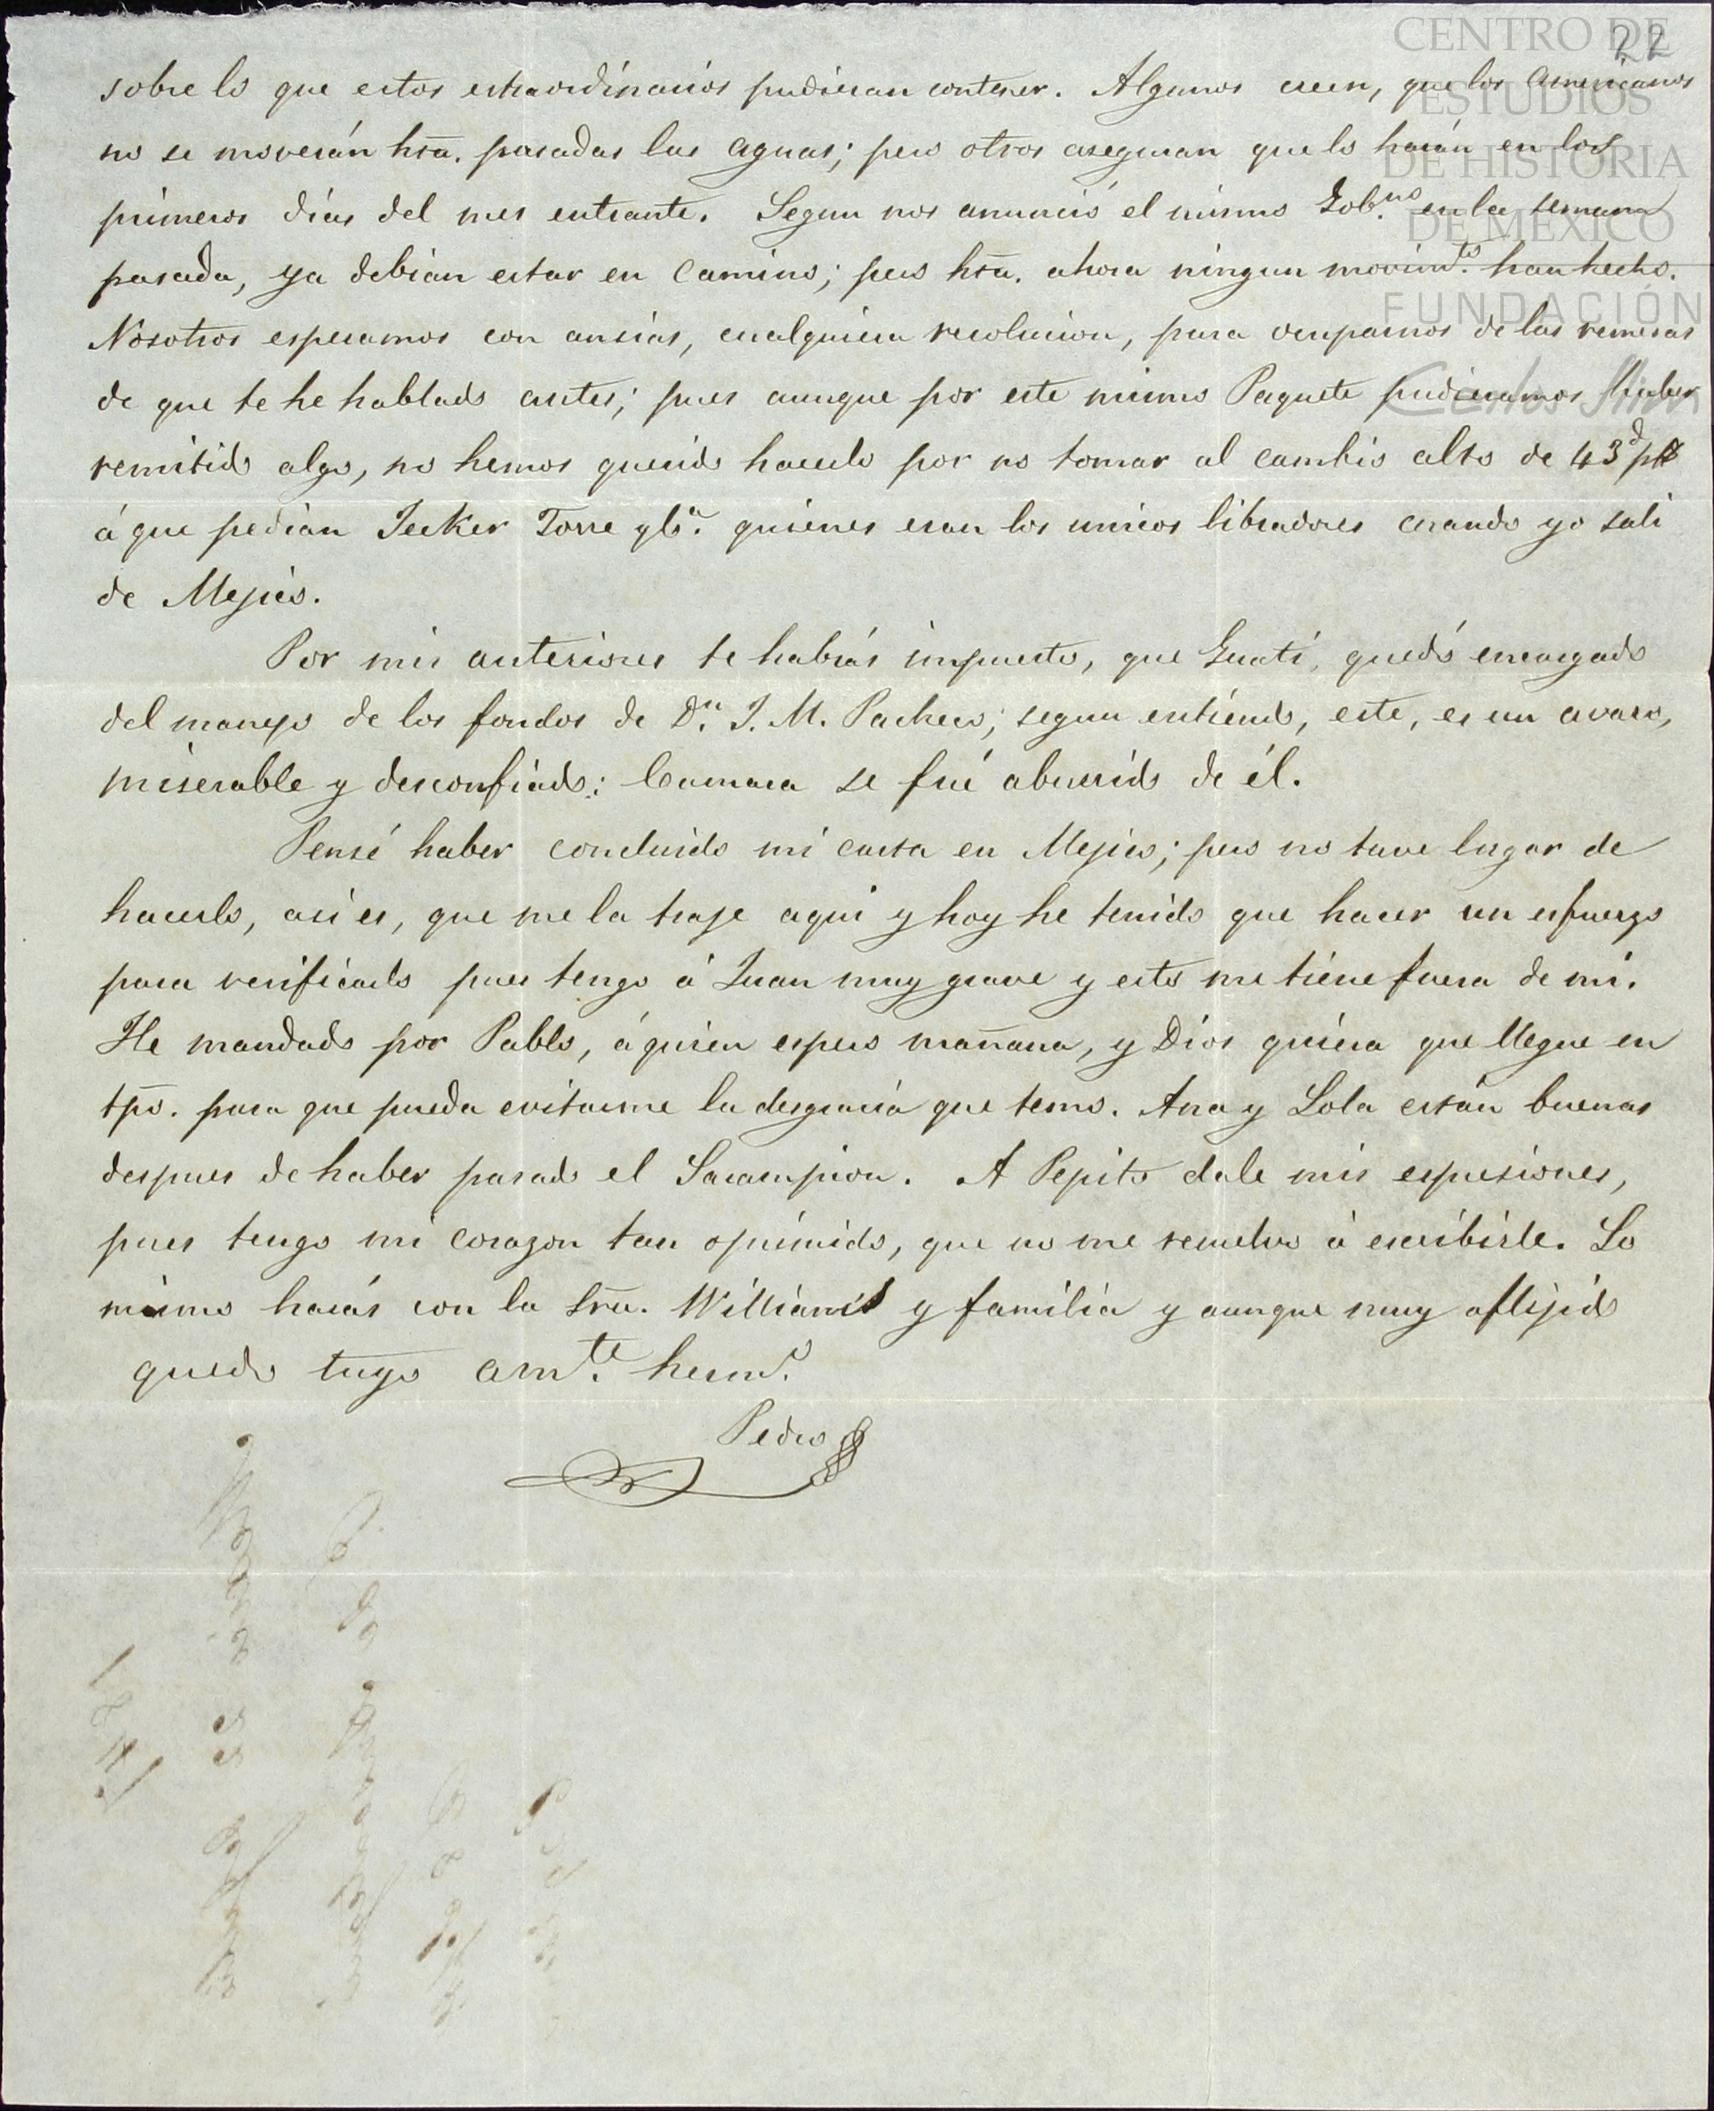 22
CENTRO DE
ESTUDIOS
DE HISTORIA
DE MEXICO
FUNDACIÓN
Carlos Slim
sobre lo que estos estraordinarios pudieran contener. Algunos creen, que los Americanos
no se moverán hta. pasadas las aguas; pero otros aseguran que lo harán en los
primeros días del mes entrante. Segun nos anunció el mismo Gob.no en la semana
pasada, ya debian estar en camino; pero hta. ahora ningun movim.to han hecho.
Nosotros esperamos con ansias, cualquiera resolucion, para ocuparnos de las remesas
de que te he hablado antes; pues aunque por este mismo Paquete pudieramos haber
remitido algo, no hemos querido hacerlo por no tomar al cambio alto de 43 d p$
á que pedian Jecker Torre y Ca. quienes eran los unicos libradores cuando yo salí
de Mejico.
Por mis anteriores te habrás impuesto, que Guati, quedó encargado
del manejo de los fondos de Dn. J. M. Pacheco; segun entiendo, este, es un avaro,
miserable y desconfiado: Camara se fué aburrido de él.
Pensé haber concluido mi carta en Mejico; pero no tuve lugar de
hacerlo, asi es, que me la traje aqui y hoy he tenido que hacer un esfuerzo
para verificarlo pues tengo á Juan muy grave y esto me tiene fuera de mi.
He mandado por Pablo, á quien espero mañana, y Dios quiera que llegue en
tpo. para que pueda evitarme la desgracia que temo. Ana y Lola están buenas
despues de haber pasado el Sarampion. A Pepito dale mis espresiones,
pues tengo mi corazon tan oprimido, que no me resuelvo á escribirle. Lo
mismo harás con la Sra. Williams y familia y aunque muy aflijido
quedo tuyo am.te herm.o
Pedro